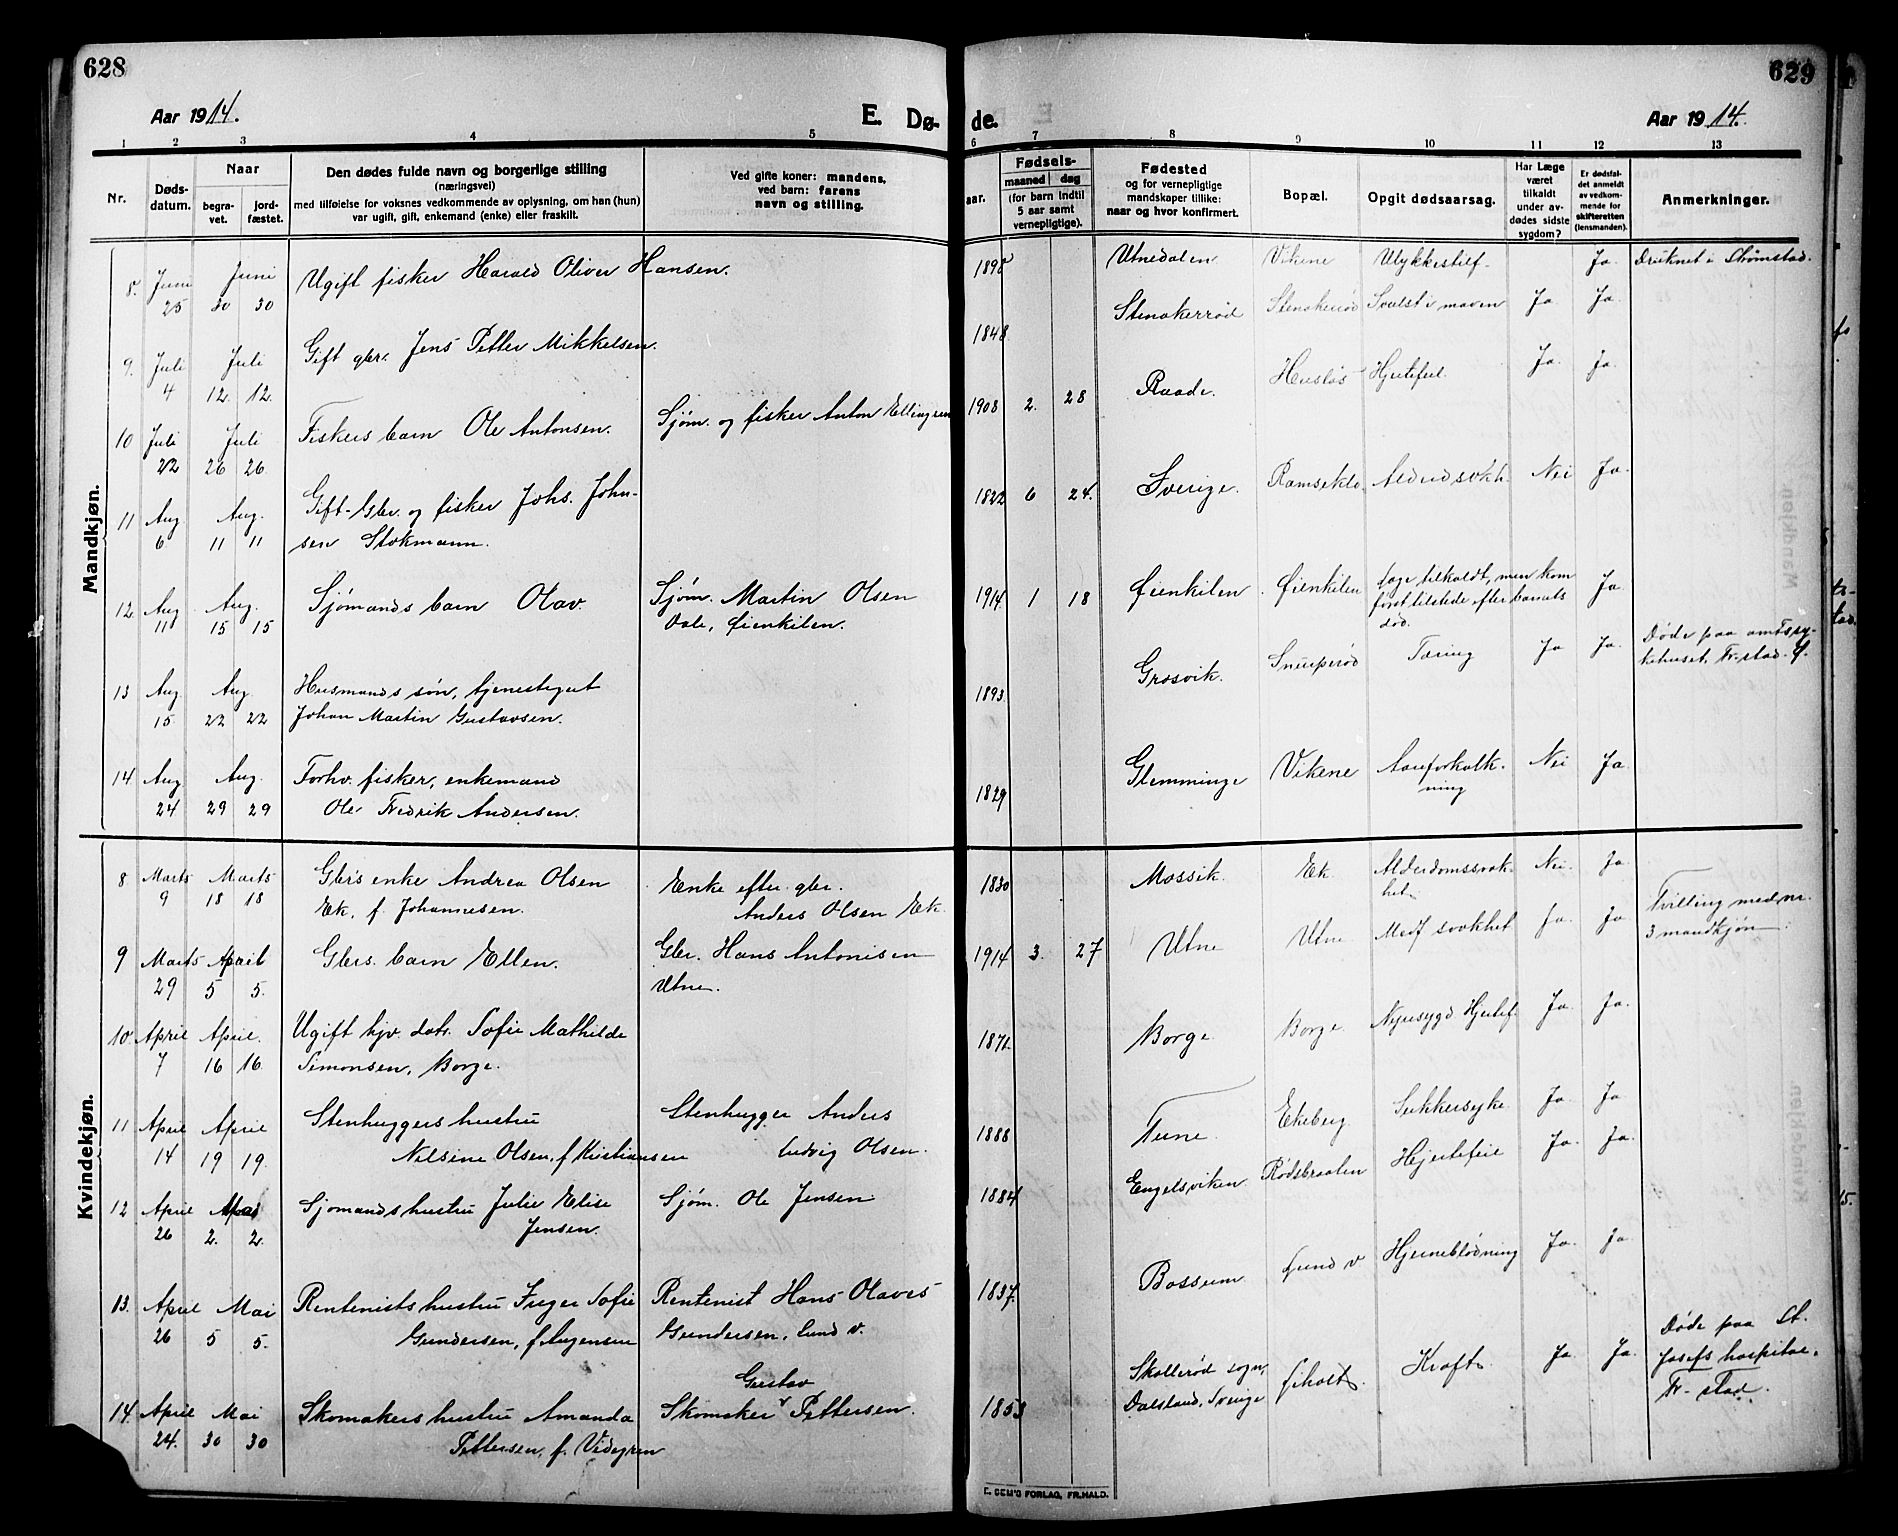 628
629
Aar 1914.
E. Dø-
de.
Aar 1914.
1 2 3 4 5 6 7 8 9 10 11 12 13
Nr.
Døds-
datum.
Naar
begra-
vet.
jord-
fæstet.
Den dødes fulde navn og borgerlige stilling
(næringsvei)
med tilføielse for voksnes vedkommende av oplysning, om han (hun)
var ugift, gift, enkemand (enke) eller fraskilt.
Ved gifte koner: mandens,
ved barn: farens
navn og stilling.
aar.
Fødsels-
maaned dag
(for barn indtil
5 aar samt
vernepligtige).
Fødested
og for vernepligtige
mandskaper tillike:
naar og hvor konfirmert.
Bopæl.
Opgit dødsaarsag.
Har Læge
været
tilkaldt
under av-
dødes sidste
sygdom?
Er dødsfal-
det anmeldt
av vedkom-
mende for
skifteretten
(lensmanden).
Anmerkninger.
Mandkjøn.
8. Juni Juni Ugift fisker Harald Oliver Hansen. Utnedalen Vikene Ulykkestilf. Ja. Druknet i Strømstad.
25 30 30
9. Juli Juli Gift gbr. Jens Petter Mikkelsen. 1848 Stenakerrød Stenakerrød Svulst i maven Ja Ja.
4 12. 12.
10 Juli Juli Fiskers barn Ole Antonsen. Sjøm. og fisker Anton 1908 2. 28 Raade. Hjertefeil. Ja. Ja.
22 26 26
11 Aug Aug. Gift Gbr. og fisker Johs. John- 1822 6 24. Sverige. Nei Ja.
6 11 11 sen Stokmann.
12. Aug Aug. Sjømands barn Olav. Sjøm. Martin Olsen 1914 1 18 Øienkilen Øienkilen Læge tilkaldt, men kom Ja.
11 15 15 Dale, Øienkilen. først tilstede efter barnets
død.
13 Aug Aug Husmands søn, tjenestegut 1893 Græsvik. Tæring Ja Ja. Døde paa amtssy-
15 22 22 Johan Martin Gustavsen. kehuset, Fr.stad.
14. Aug Aug. Forhv. fisker, enkemand 1829 Glemminge Vikene Aareforkalk- Nei Ja.
24 29 29 Ole Fredrik Andersen. ning
Kvindekjøn.
8 Marts Marts Gbrs enke Andrea Olsen Enke efter gbr. 1830 Mossik. Ek Alderdomssvak- Nei. Ja
9 18 18 Ek, f. Johannesen. Anders Olsen Ek. het
9 Marts April Gbrs. barn Ellen. Gbr. Hans Antonisen 1914 3. 27 Utne Utne Medf svakhet Ja. Ja Tvilling med nr.
29 5 5. Utne. 3 mandkjøn.
10. April April. Ugift hjv. datr. Sofie Mathilde 1871. Borge Borge Nyresygd Hjertef. Ja. Ja.
7 16 16. Simonsen, Borge.
11 April April Stenhuggers hustru Stenhugger Anders 1888 Tune. Ekeberg. Sukkersyke Ja. Ja
14 19 19. Nilsine Olsen, f. Kristiansen Ludvig Olsen.
12 April Sjømands hustru Julie Elise Sjøm. Ole Jensen 1884 Engelsviken Rødsbraaten Hjertefeil Ja. Ja.
26 2. 2. Jensen.
13. April Mai Rentenists hustru Inger Sofie Rentenist Hans Olaves 1837. Bossum Lund v Hjerneblødning Ja. Ja.
26 5 5. Gundersen, f. Gundersen, Lund v.
14. April Mai Skomakers hustru Amanda Skomaker Gustav Pettersen. 1853 Skallerød sogn, Kræft. Ja. Ja. Døde paa St.
24. 30 30 Pettersen, f. Videgren Dalsland, Sverige Josefs hospital.
Fr-stad.
E. SEM'S FORLAG, FR.HALD.